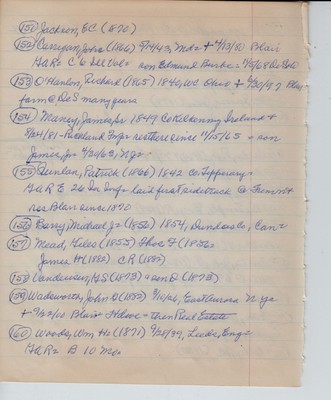 (151) Jackson, E.C. (1870)
(152) Corrigan, John (1866) 5/ /43, Md. + 4/13/80 Blair
GAR. C 6 Del Vol. son Edmund Burke =
(153) O'Hanlon, Richard (1865) 1840, WC Ohio + 6/30/47 Blair
farm @ DeS many years
(154) Maney, James, Sr 1849 Co Kilkenny Ireland +
8/24/81 - res there since 11/15/65 = son
James, Jr 4/20/63, NJ.
(155) Quinlan, Patrick (1866) 1842 Co Tipperary =
GAR E 26 Inf = laid first sidetrack @ Fremont
res Blair since 1870
(156) Barry, Michael Jr (1856) 1854, Dundas Co, Can.
(157) Mead, Giles (1855) Thos F (1856)
James H (1882) CR (1882)
(158) Vanderson, GS (1873) = son D (1873)
(159) Wadsworth, John D (1882) 9/10/26, East Aurora NY
+ 9/22/00 Blair Hdwe = then Real Estate
(160) Woods, Wm H. (1871) 9/28/39, Leeds, Eng.
GAR. B 10 Mo.